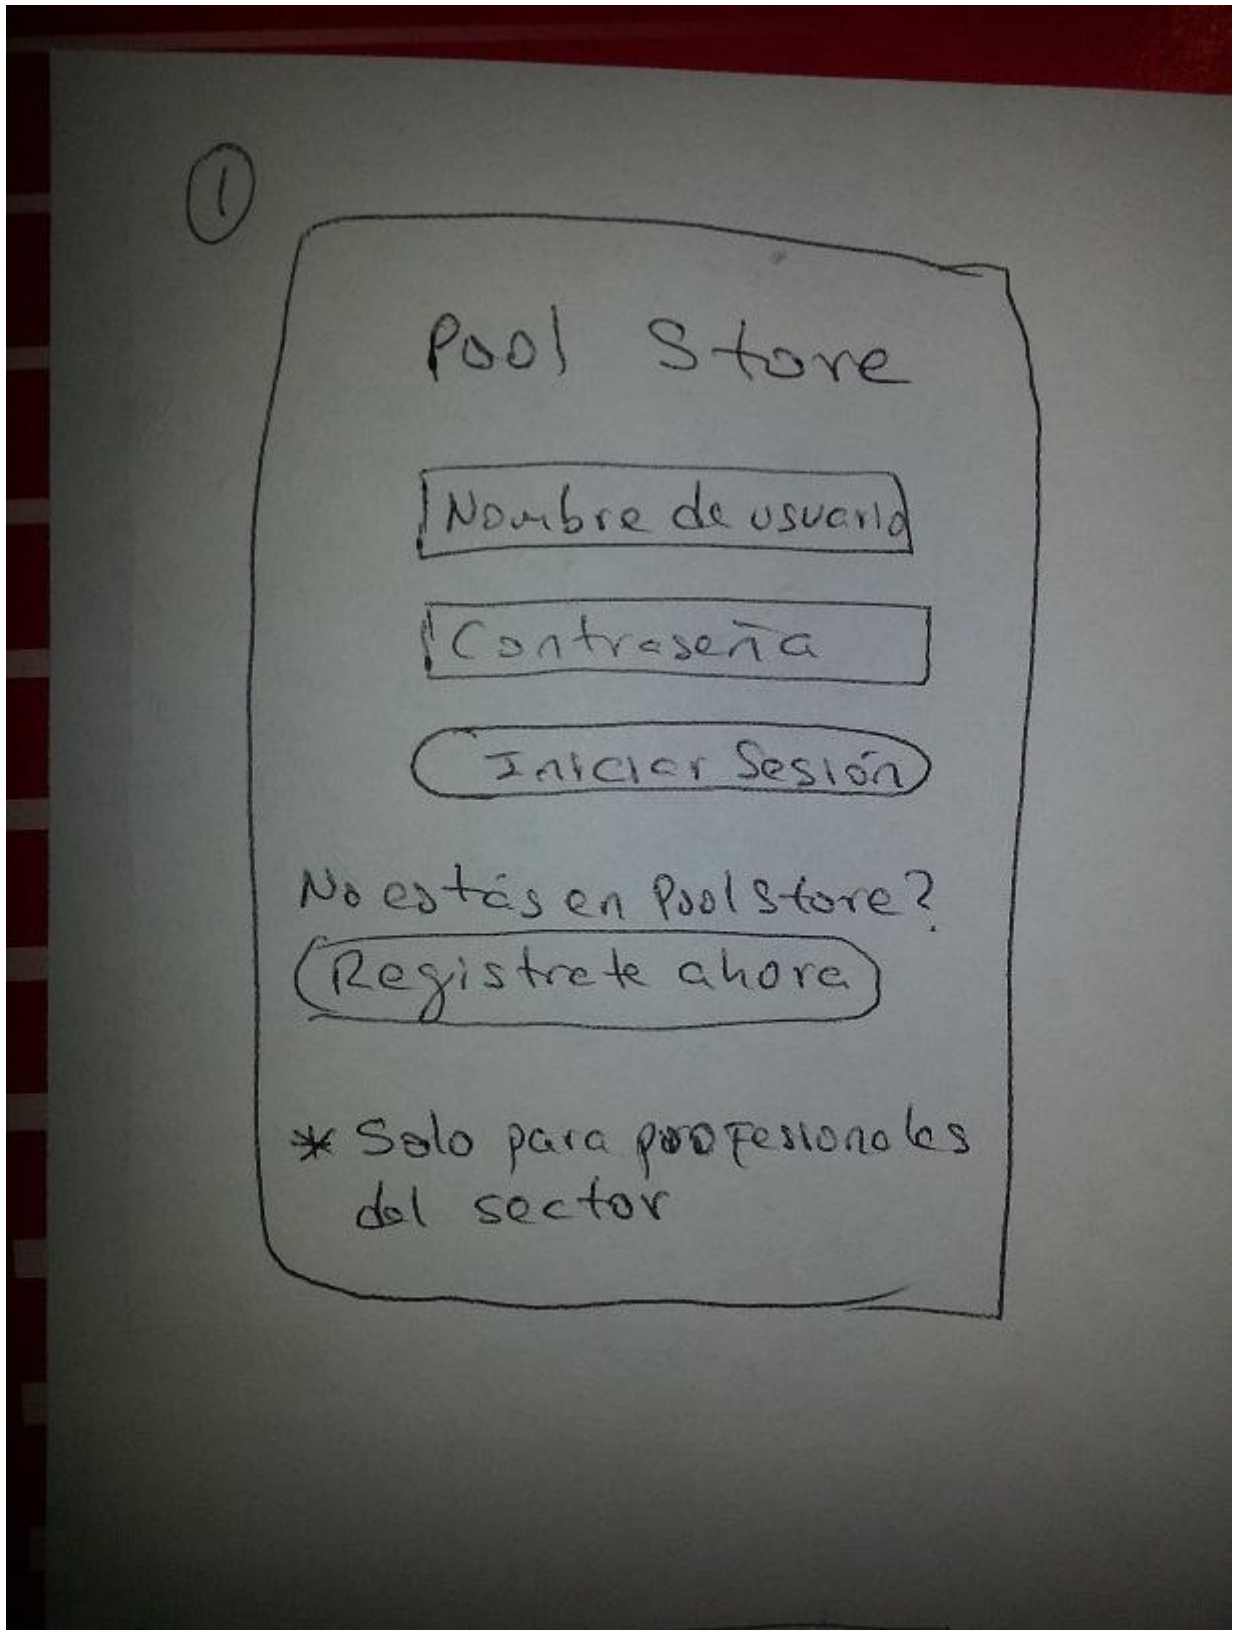 1
Pool Store
Nombre de usuario
Contraseña
Iniciar Sesión
No estás en Poolstore?
Registrate ahora
* Solo para profesionales
del sector